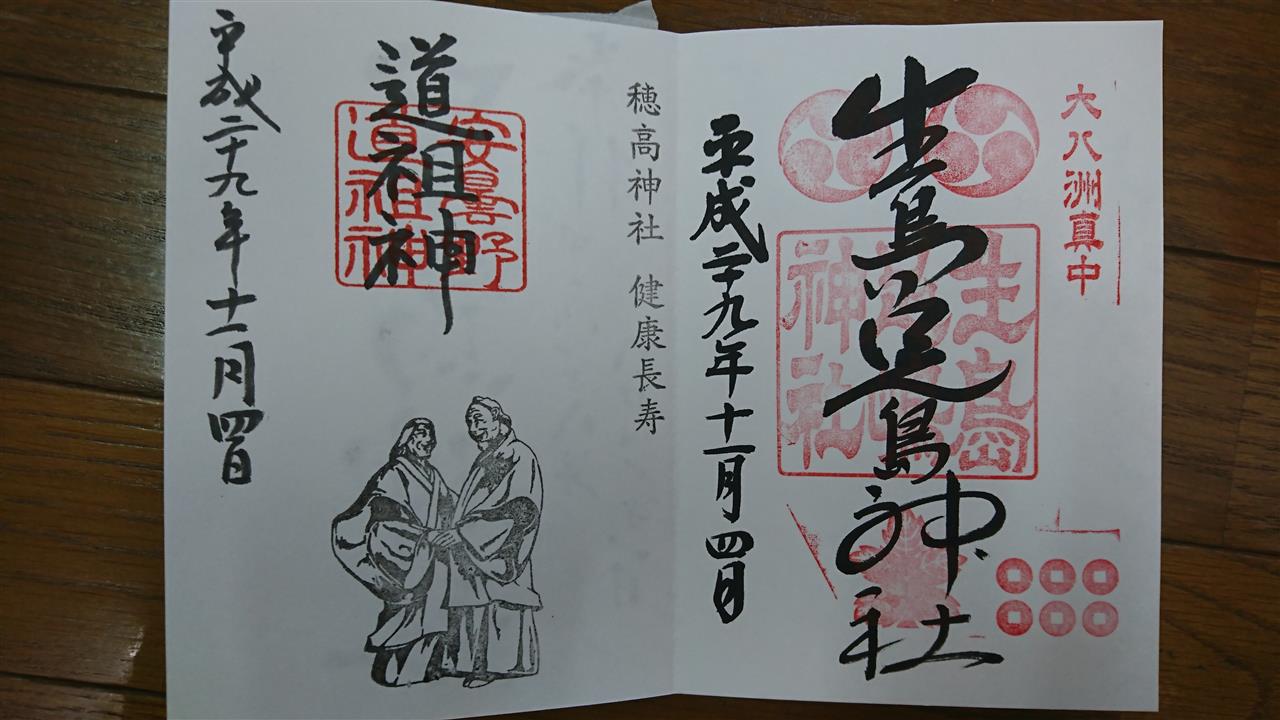 大八洲真中
生島足島神社
生島足島神社
平成二十九年十一月四日
穂高神社 健康長寿
道祖神
安曇野
道祖神
平成二十九年十一月四日